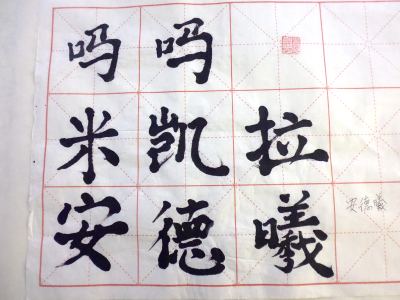 吗吗
米凯拉
安德曦 安德曦